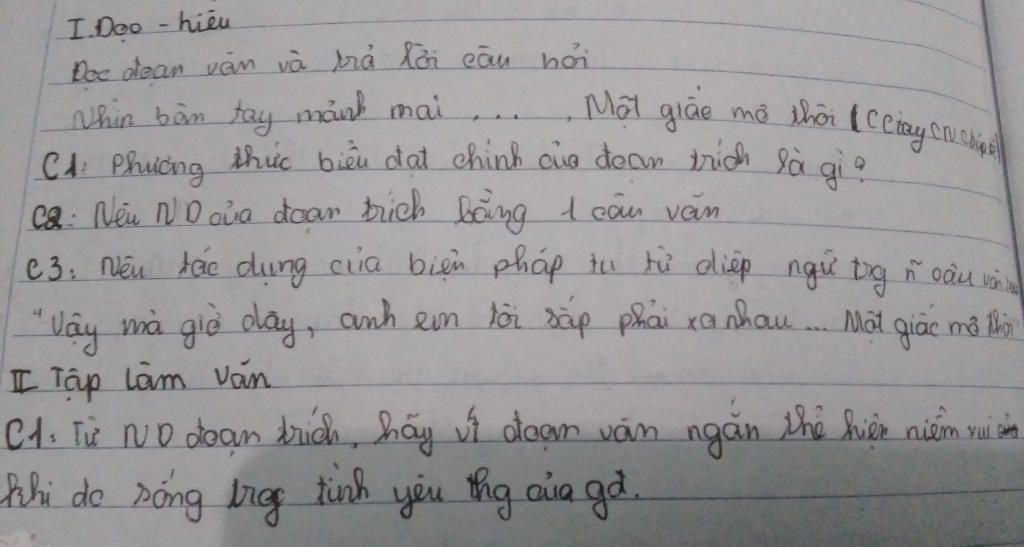 I. Đọc - hiểu
Đọc đoạn văn và trả lời câu hỏi
Nhìn bàn tay mảnh mai .... Một giấc mơ thôi (CCtay CN
C1: Phương thức biểu đạt chính của đoạn trích là gì?
C2: Nêu ND của đoạn trích bằng 1 câu văn
C3: Nêu tác dụng của biện pháp tu từ điệp ngữ trg ~n câu văn
"Vậy mà giờ đây, anh em tôi sắp phải xa nhau... Một giấc mơ thôi
II Tập làm văn
C1: Từ ND đoạn trích, hãy vt đoạn văn ngắn thể hiện niềm vui
khi đc sống trg tình yêu thg của gđ.